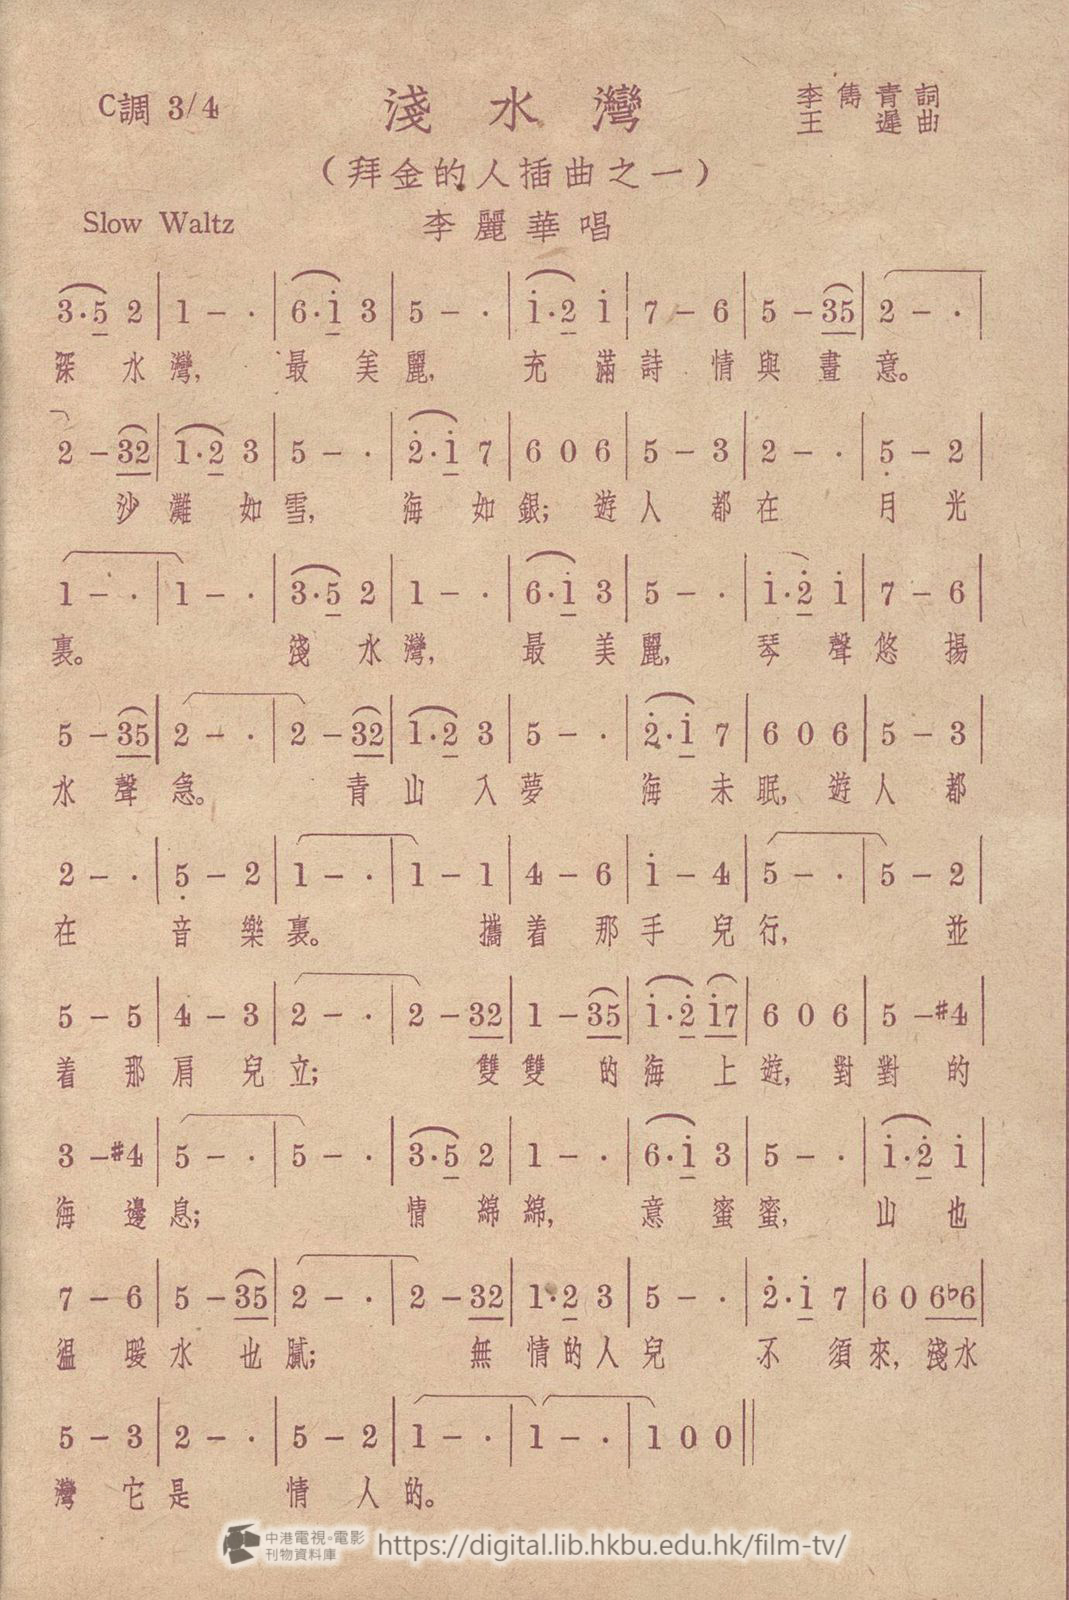 C調 3/4
淺水灣
李雋青詞
王遲曲
(拜金的人插曲之一)
Slow Waltz
李麗華唱
3·5 2 | 1 - · | 6·i 3 | 5 - · | i·2 i | 7 - 6 | 5 - 35 | 2 - · |
深水灣, 最美麗, 充滿詩情與畫意。
2 - 32 | 1·2 3 | 5 - · | 2·i 7 | 6 0 6 | 5 - 3 | 2 - · | 5 - 2 |
沙灘如雪, 海如銀; 遊人都在月光
1 - · | 1 - · | 3·5 2 | 1 - · | 6·i 3 | 5 - · | i·2 i | 7 - 6 |
裏。 淺水灣, 最美麗, 琴聲悠揚
5 - 35 | 2 - · | 2 - 32 | 1·2 3 | 5 - · | 2·i 7 | 6 0 6 | 5 - 3 |
水聲急。 青山入夢 海未眠, 遊人都
2 - · | 5 - 2 | 1 - · | 1 - 1 | 4 - 6 | i - 4 | 5 - · | 5 - 2 |
在音樂裏。 攜着那手兒行, 並
5 - 5 | 4 - 3 | 2 - · | 2 - 32 | 1 - 35 | i·2 i7 | 6 0 6 | 5 - #4 |
着那肩兒立; 雙雙的海上遊, 對對的
3 - #4 | 5 - · | 5 - · | 3·5 2 | 1 - · | 6·i 3 | 5 - · | i·2 i |
海邊息; 情綿綿, 意蜜蜜, 山也
7 - 6 | 5 - 35 | 2 - · | 2 - 32 | 1·2 3 | 5 - · | 2·i 7 | 6 0 6b6 |
溫暖水也膩; 無情的人兒 不須來, 淺水
5 - 3 | 2 - · | 5 - 2 | 1 - · | 1 - · | 1 0 0 ||
灣它是情人的。
中港電視·電影
刊物資料庫
https://digital.lib.hkbu.edu.hk/film-tv/